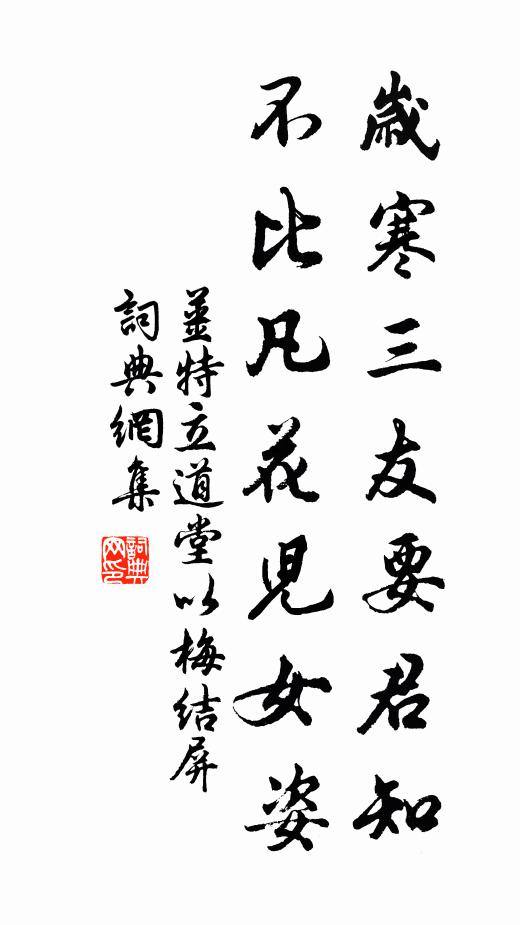 歲寒三友要君知
不比凡花兒女姿
薑特立道堂以梅結屏
詞典網集
詞典網印